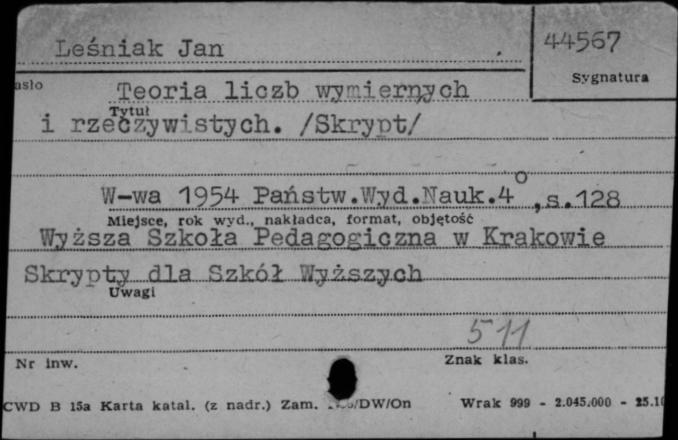 Leśniak Jan
44567
Sygnatura
asło
Teoria liczb wymiernych
Tytuł
i rzeczywistych. /Skrypt/
W-wa 1954 Państw.Wyd.Nauk.4°,s.128
Miejsce, rok wyd., nakładca, format, objętość
Wyższa Szkoła Pedagogiczna w Krakowie
Skrypty dla Szkół Wyższych
Uwagi
511
Nr inw.
Znak klas.
CWD B 15a Karta katal. (z nadr.) Zam. /DW/On Wrak 999 - 2.045.000 -